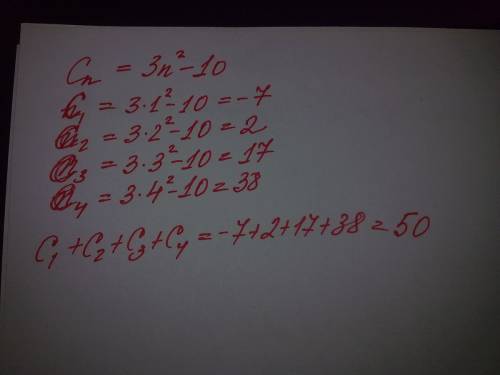 Cₙ = 3n²-10
C₁ = 3·1²-10 = -7
C₂ = 3·2²-10 = 2
C₃ = 3·3²-10 = 17
C₄ = 3·4²-10 = 38
C₁+C₂+C₃+C₄ = -7+2+17+38 = 50